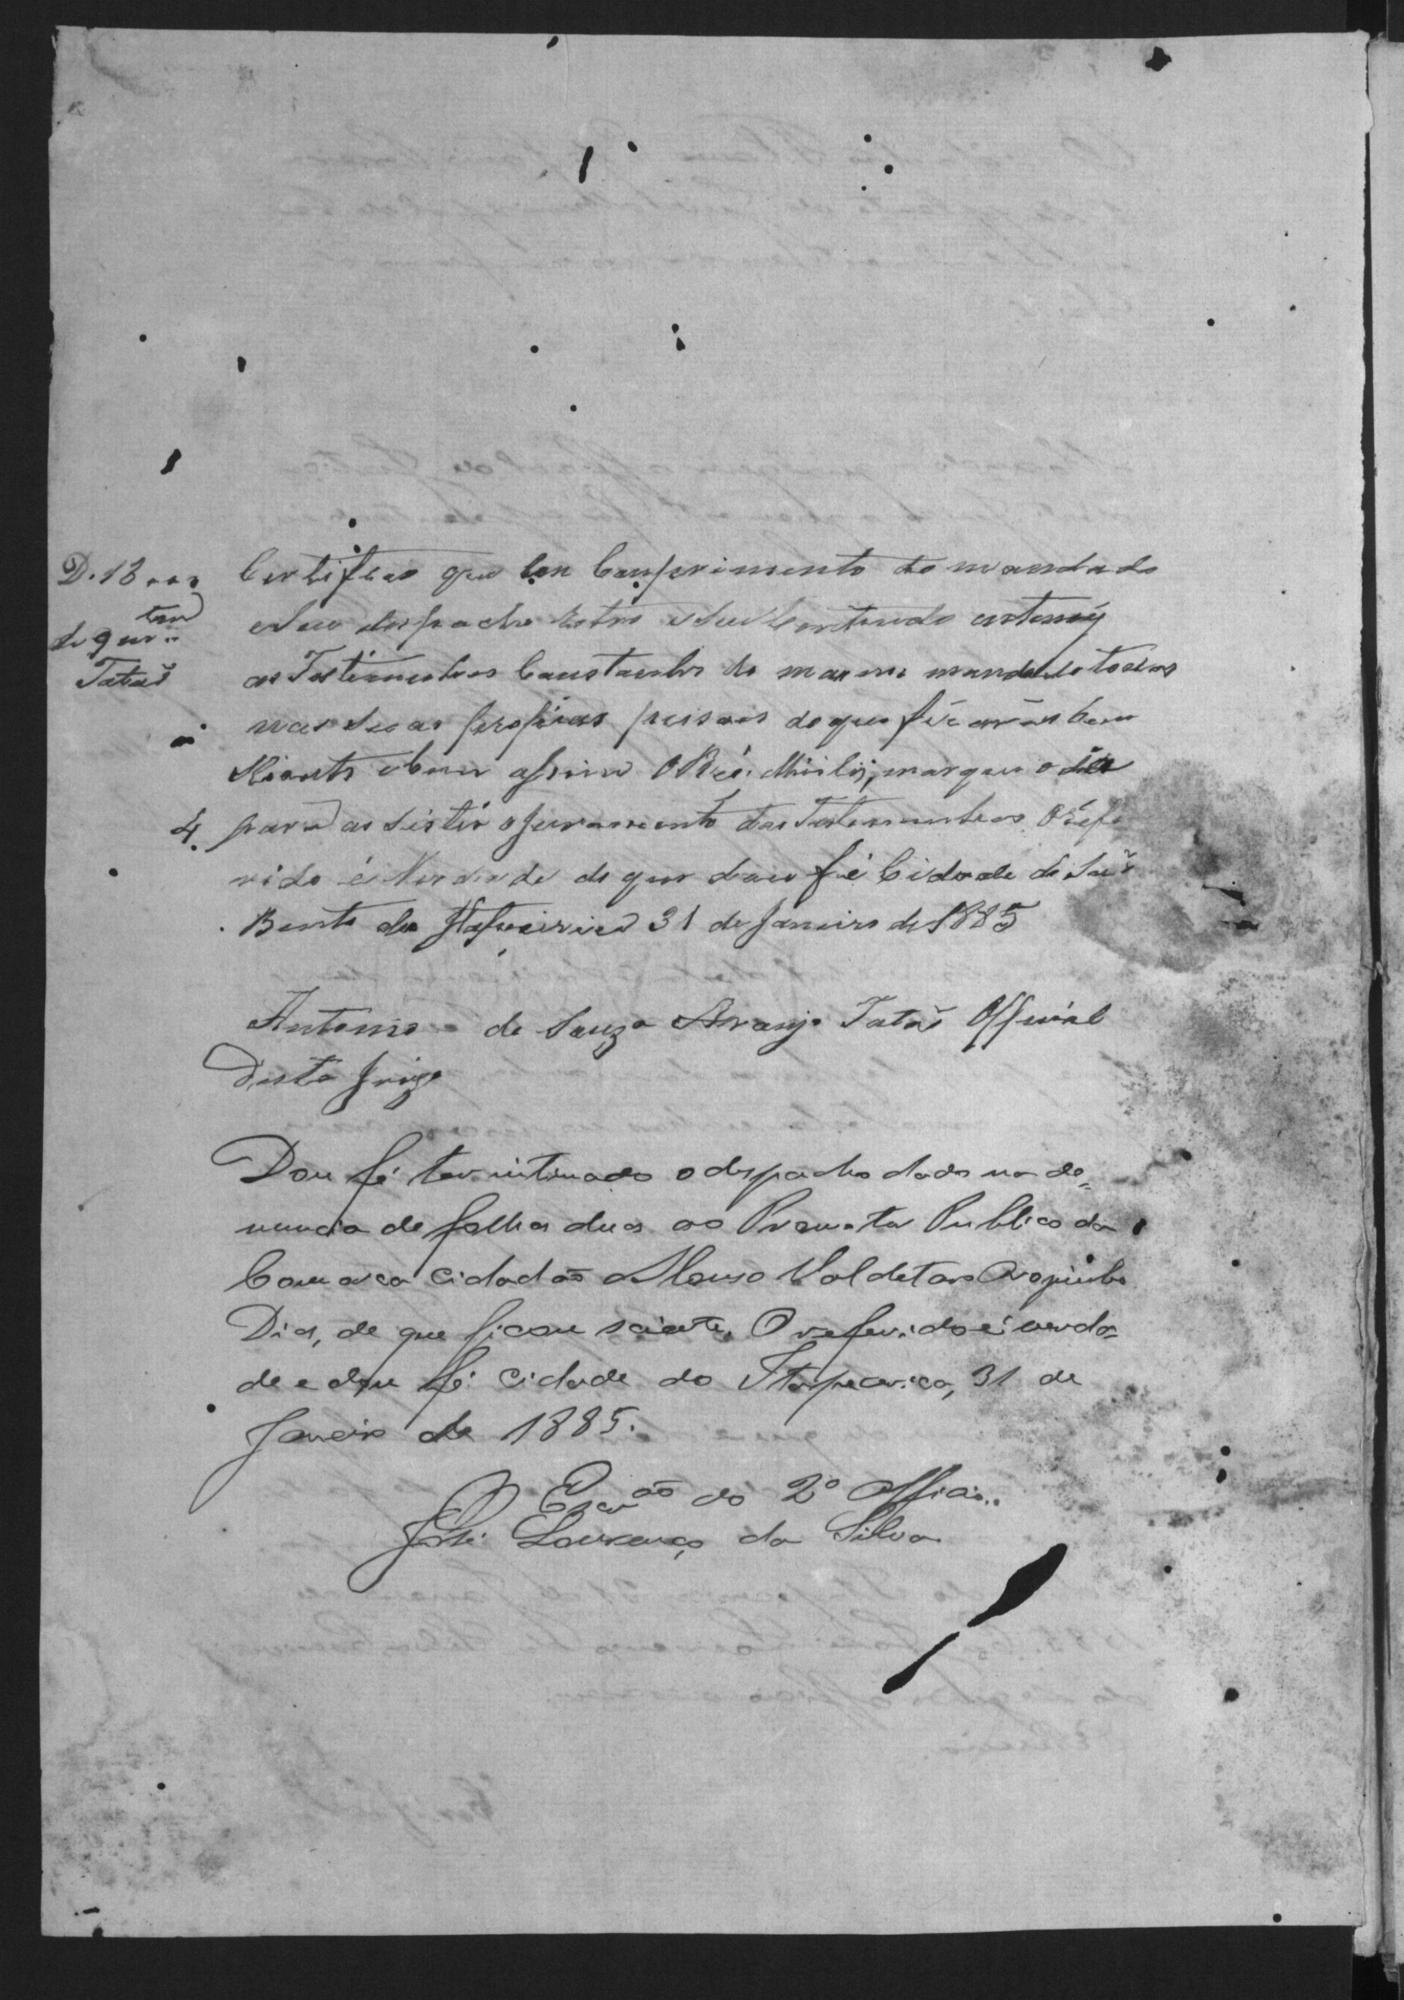 D. 18...
tão
de que
Tatão
4.
Certifico que em Comprimento do mandado
e seu despacho retro e seu Conteudo entemey
as Testemunhas Constantes do mesmo mandado todos
nas suas proprias pessoas do que ficarão bem
sciente e bem assim o Réo marquei o dia
para assistir o juramento das Testemunhas O refe
rido é Verdade do que dou fé Cidade de São
Bento do Itapecirica 31 de Janeiro de 1885
Antonio de Souza Araujo Tatão Official
Deste Juizo
Dou fé ter intimado o despacho dado na de=
nuncia de folhas duas ao Promotor Publico da
Comarca cidadão Valdetaro
Dias, de que ficou sciente. O referido é verda=
de e dou fé. Cidade do Itapecerica, 31 de
Janeiro de 1885.
O Escrão do 2º Officio..
José Lourenço da Silva